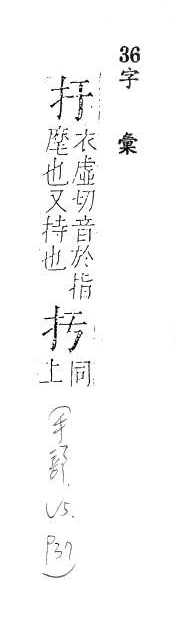 36字彙
扜
衣虛切音於指
麾也又持也
扝
同
上
(手部. V5. P37)